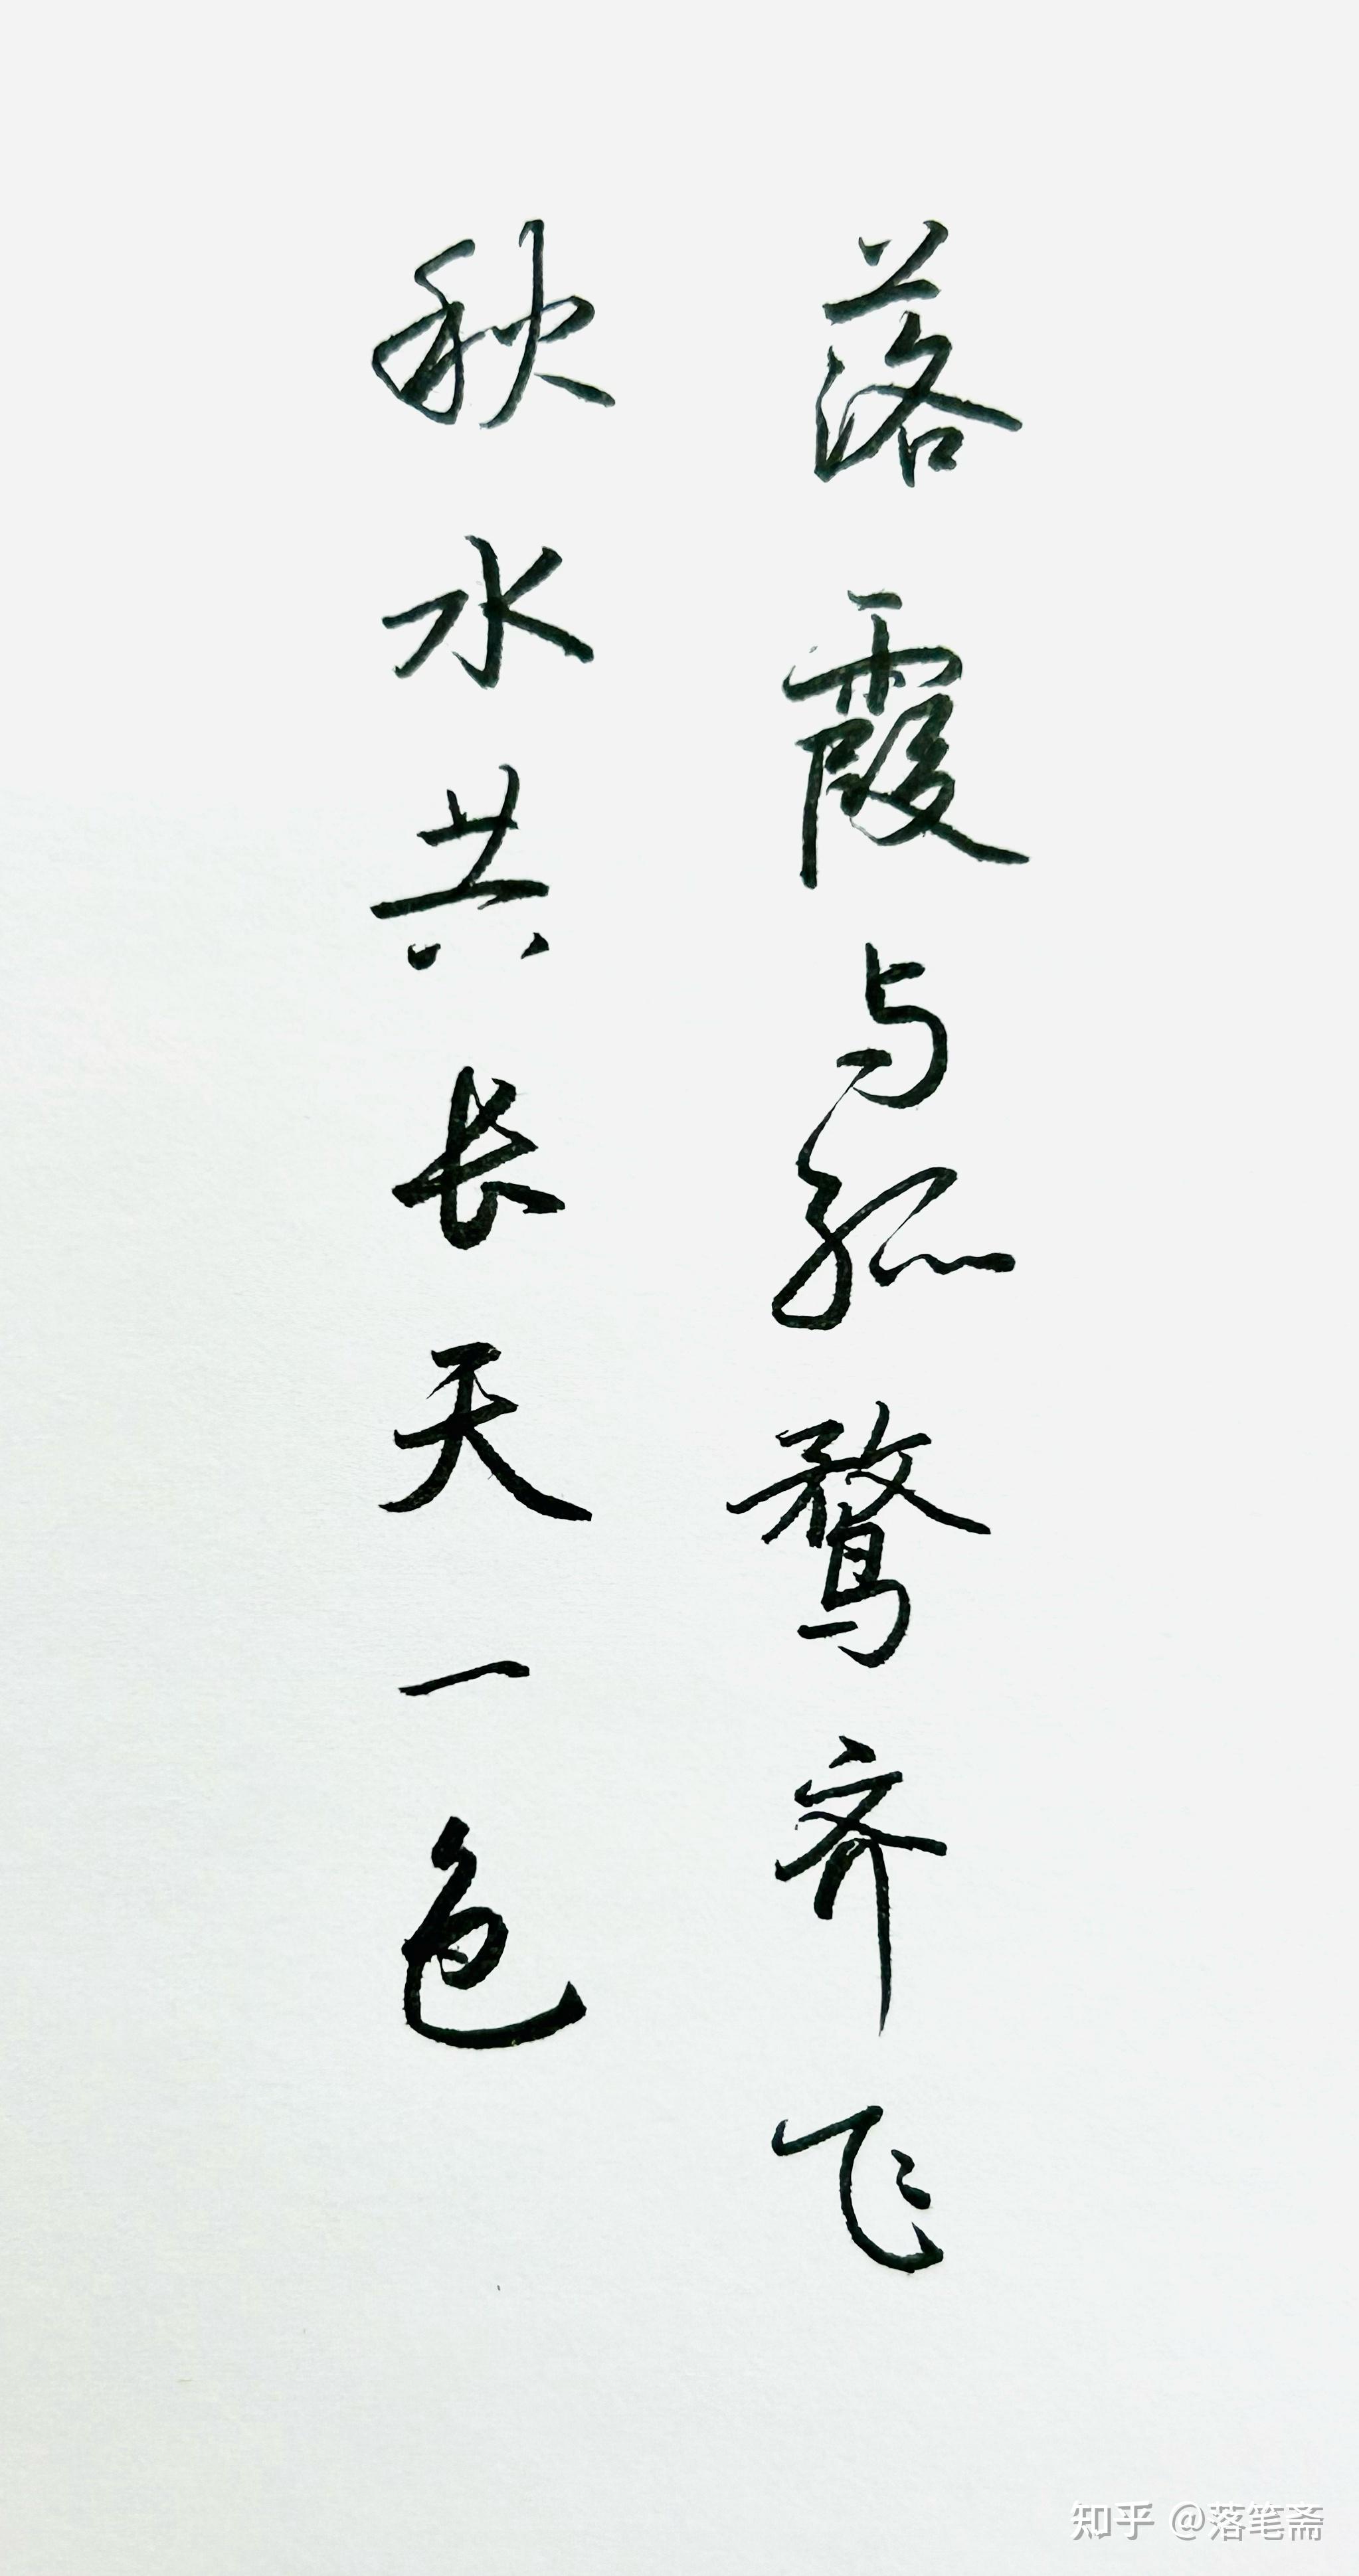 落霞与孤鹜齐飞
秋水共长天一色
知乎 @落笔斋